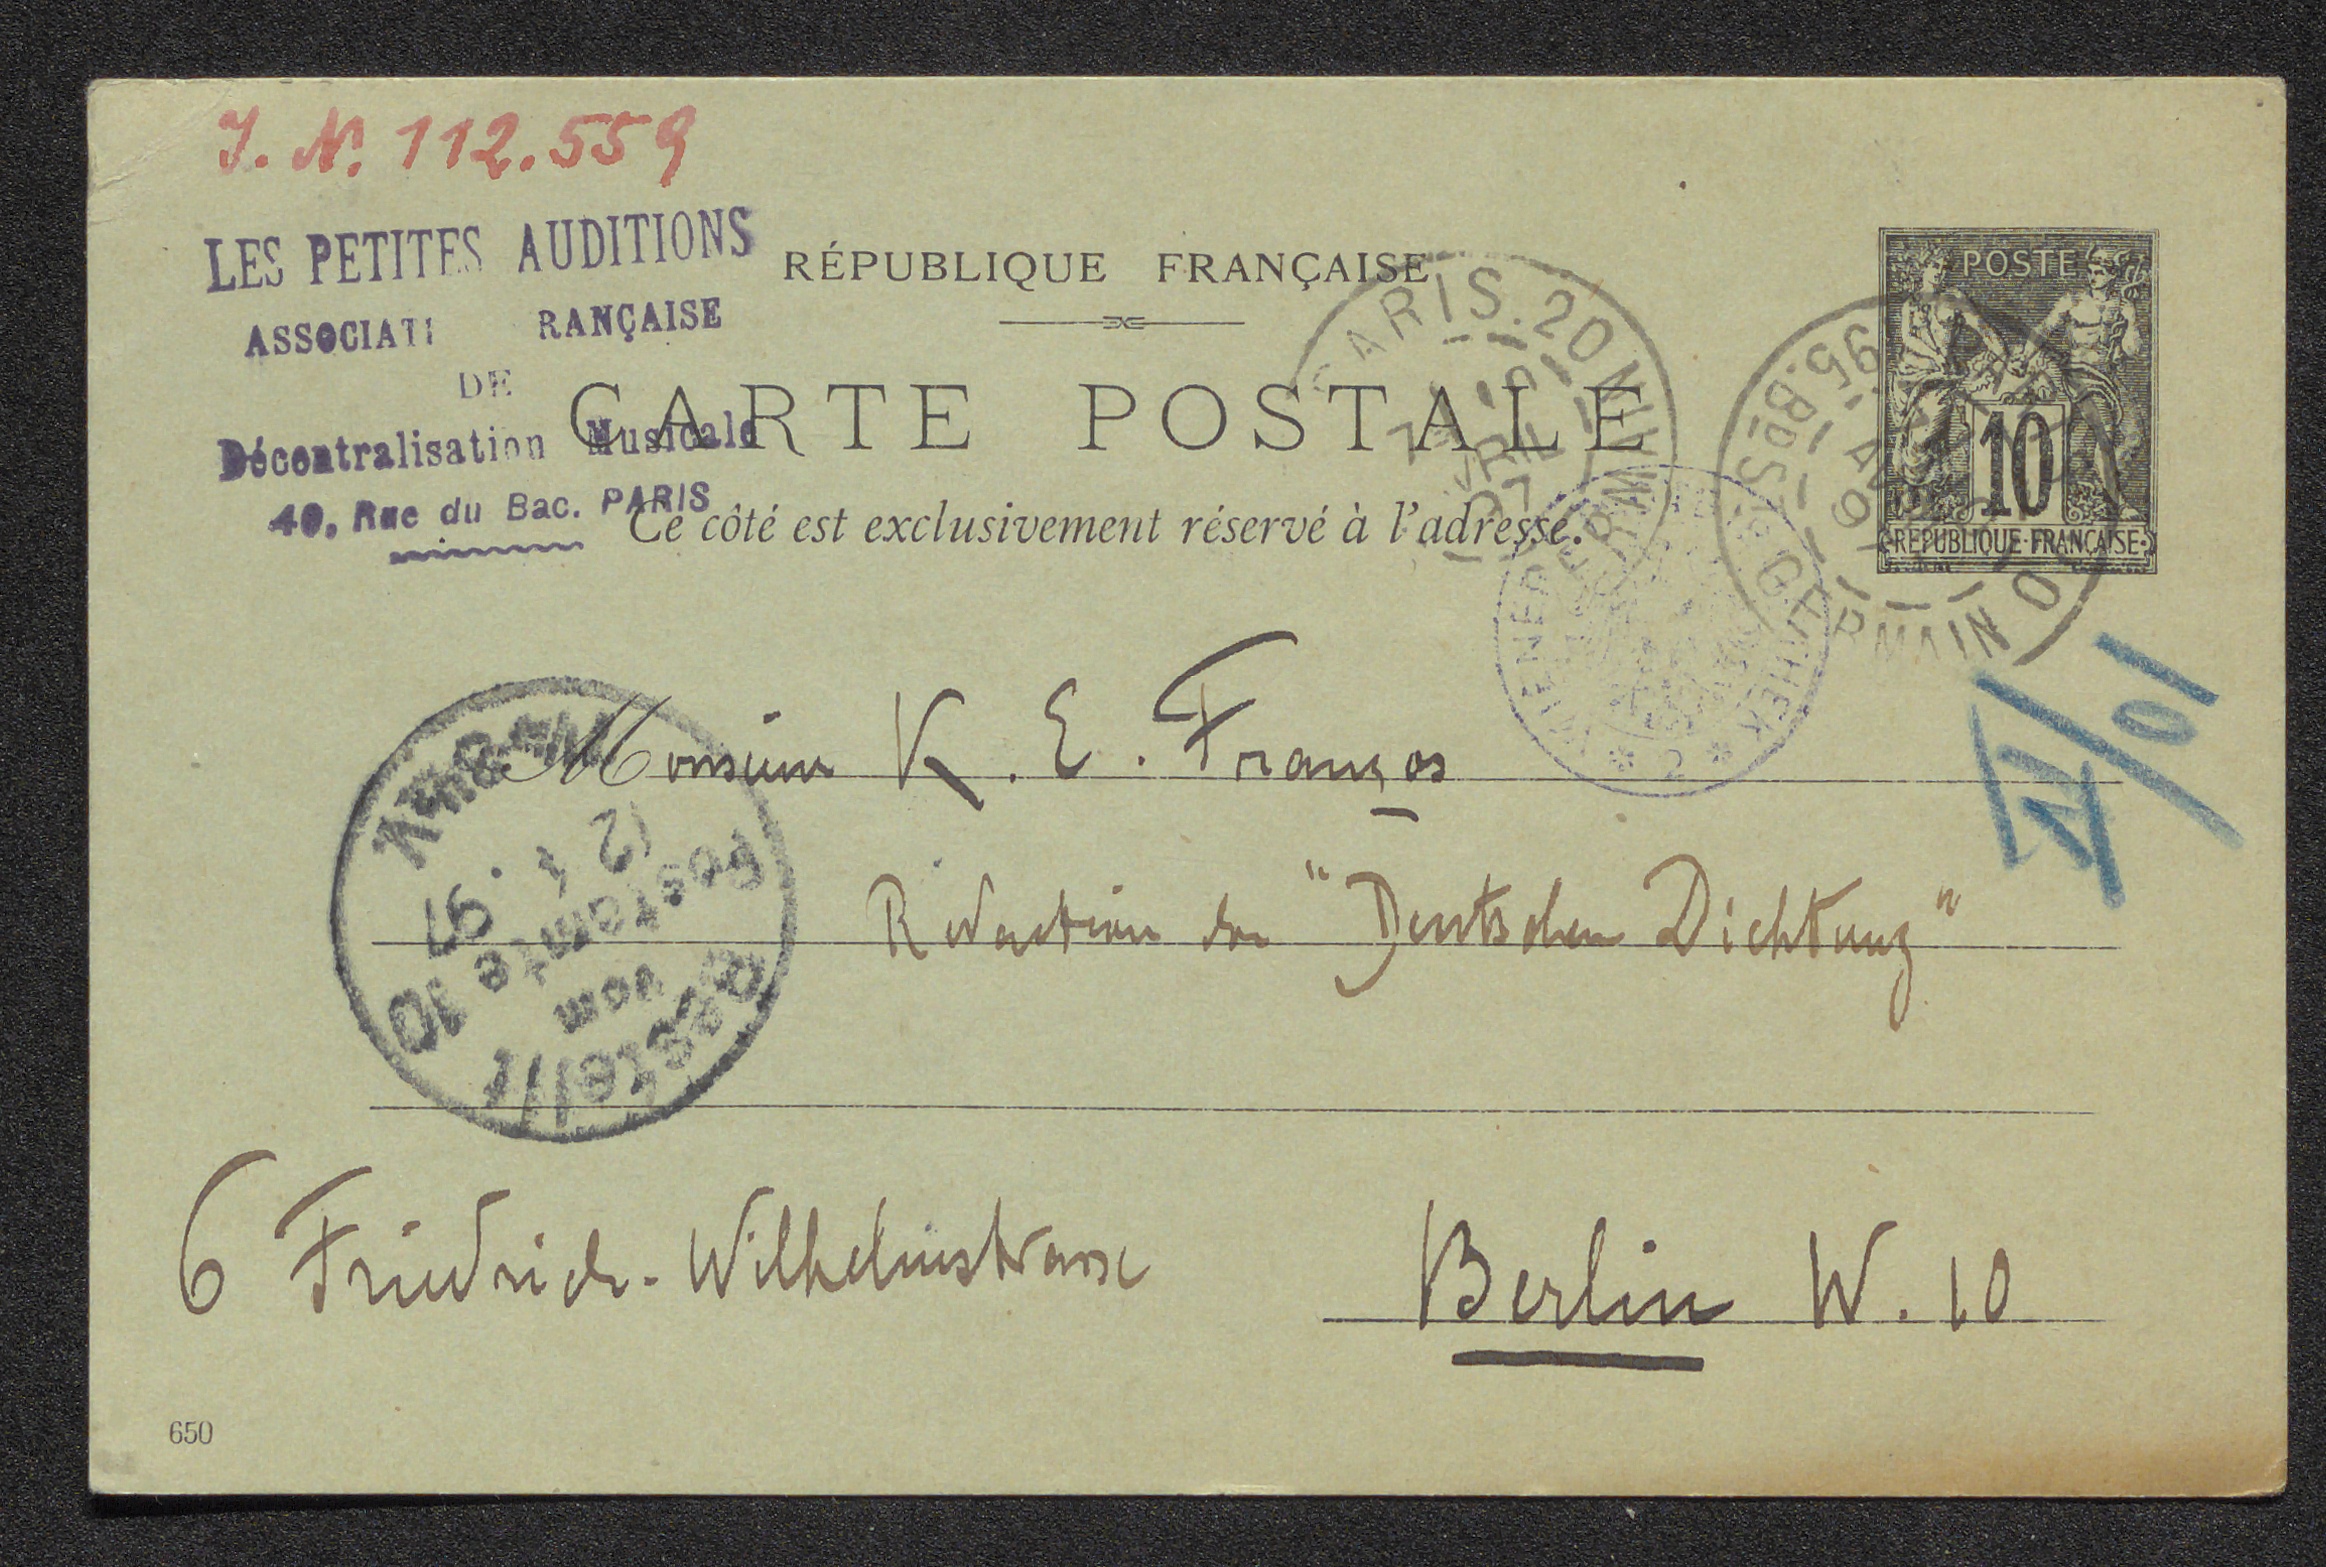 J. N. 112.559
LES PETITES AUDITIONS
ASSOCIATI RANÇAISE
DE
Décentralisation Musicale
40, Rue du Bac. PARIS
RÉPUBLIQUE FRANÇAISE
CARTE POSTALE
Ce côté est exclusivement réservé à l'adresse.
POSTE
10
REPUBLIQUE FRANÇAISE
PARIS. 20
95. Bd ST GERMAIN
WIENER
2
IV/01
Monsieur K. E. Franzos
Redaction der "Deutschen Dichtung"
Bestellt
vom
Postamte 10
97
6 Friedrich-Wilhelmstrasse
Berlin W. 10
650